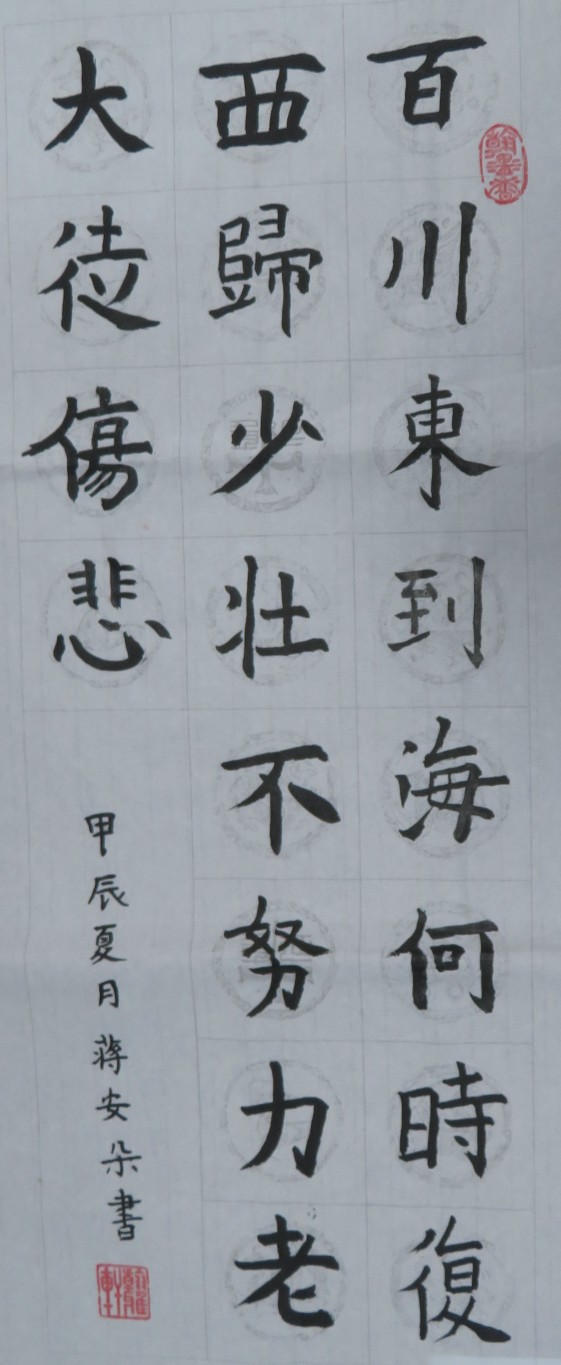 百川東到海何時復
西歸少壯不努力老
大徒傷悲
甲辰夏月蔣安朵書